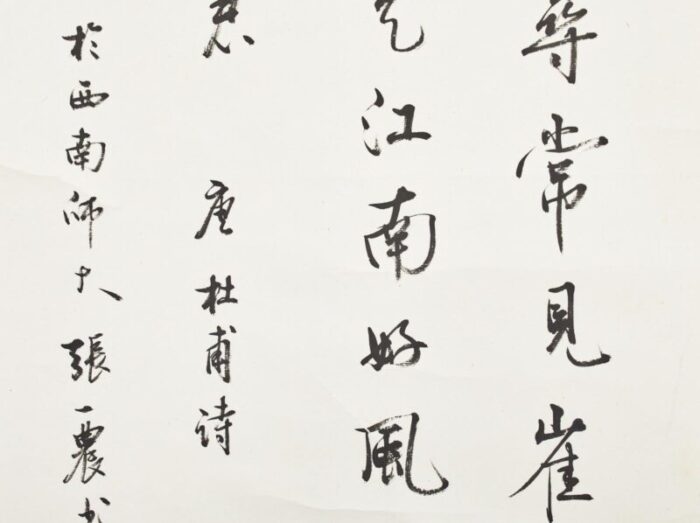 尋常見崔
是江南好風
君 唐杜甫诗
於西南师大張一農书